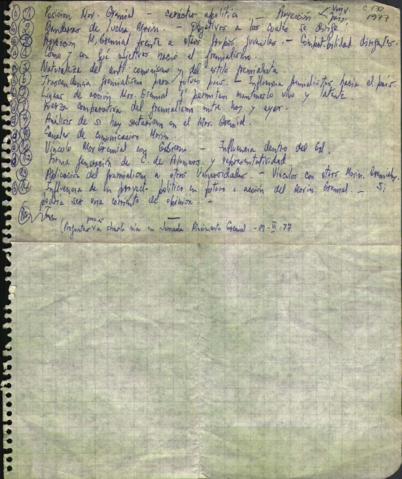 Posición Mov. Gremial - carácter apolítico - Proyección Univ.
1977
Banderas de lucha Movim - Objetivos a los cuales se dirige
M. Gremial frente a otros grupos juveniles - Compatibilidad dirigentes.
Cómo y con qué objetivos nació el gremialismo
Naturaleza del anti comunismo y del estilo gremialista
Trascendencia gremialismo para futuro país - Influencia gremialismo hacia el país.
Líneas de acción Mov. Gremial q' permitan mantenerlo vivo y latente
Fuerza comparativa del gremialismo entre hoy y ayer.
Análisis de si hay sectarismo en el Mov. Gremial.
Canales de comunicación Movim.
Vínculo Mov. Gremial con Gobierno - Influencia dentro del Gob.
Forma generación C. de Alumnos y representatividad
Aplicación del gremialismo a otras Universidades - Vínculos con otros Movim.
Influencia de un proyecto político en futura acción del Movim. Gremial. - Si
podría ser una corriente de opinión -
para
Preguntas charla mía en Jornada Gremial - 77